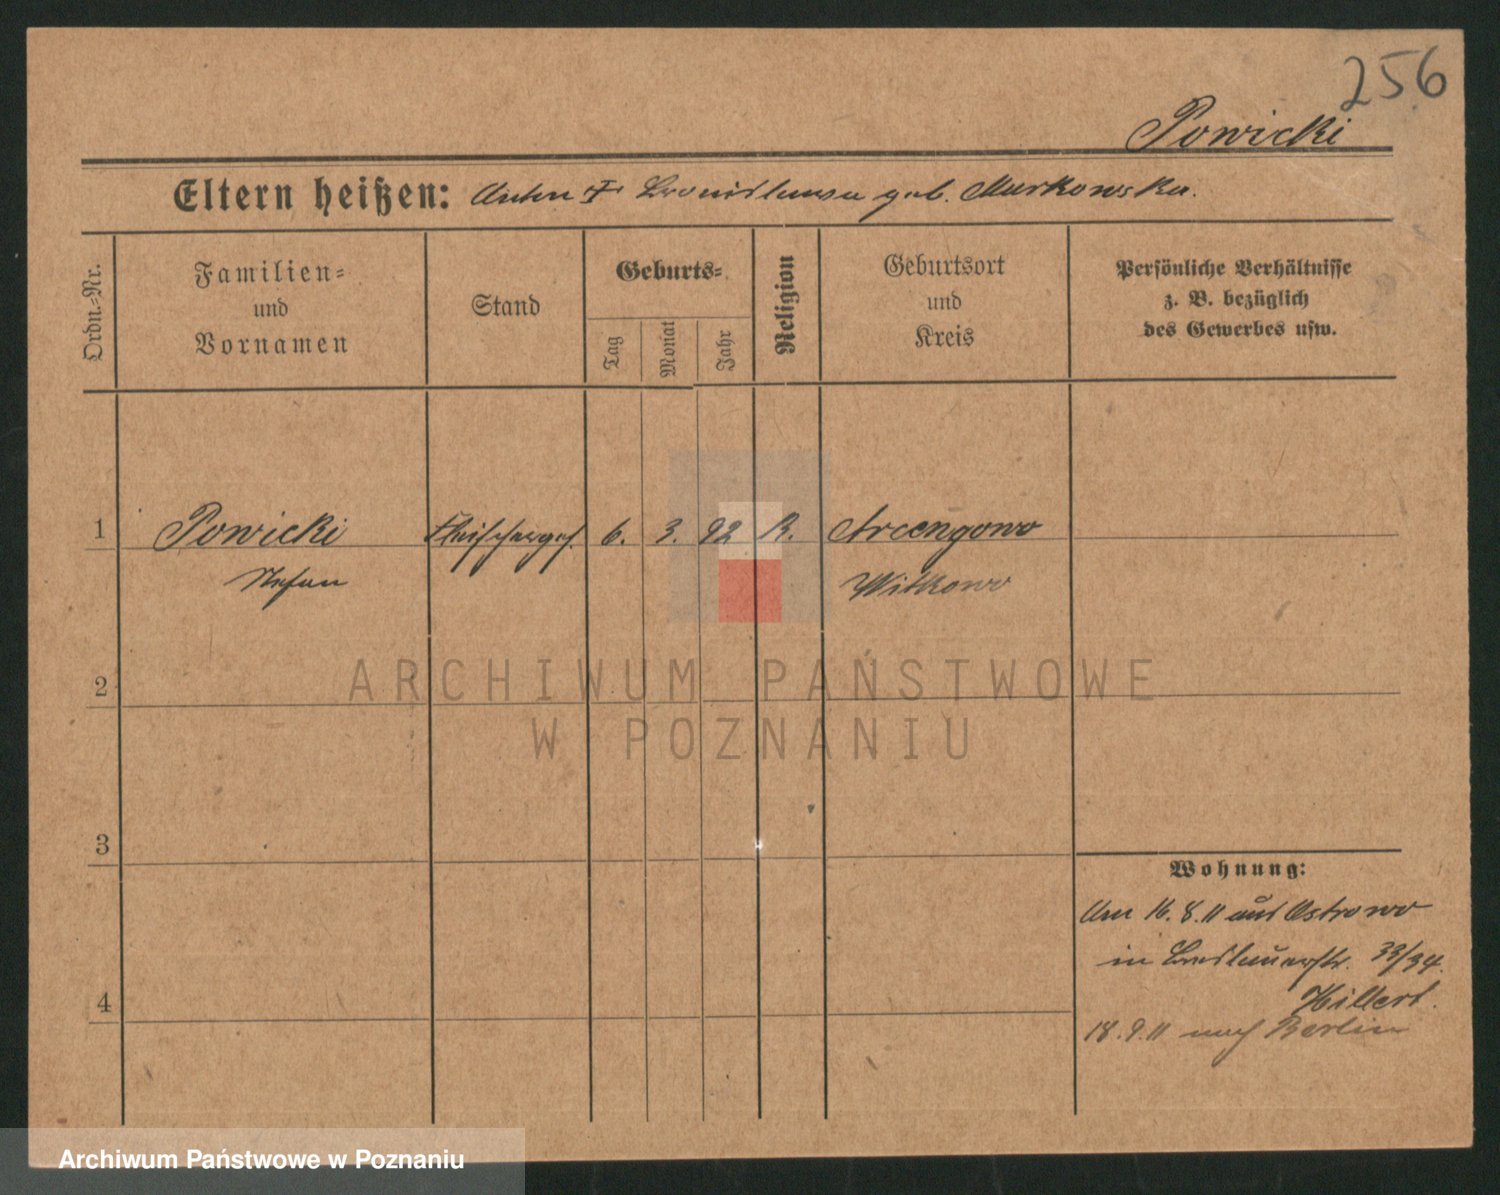 256
Powicki
Eltern heißen: Anton † Bronislawa geb. Markowska.
Ordn.=Nr.
Familien=
und
Vornamen
Stand
Geburts=
Tag
Monat
Jahr
Religion
Geburtsort
und
Kreis
Persönliche Verhältnisse
z. B. bezüglich
des Gewerbes usw.
1 Powicki Fleischerges. 6. 3. 92 R. Arcengowo
Stefan Witkowo
ARCHIWUM PAŃSTWOWE
W POZNANIU
2
3
4
Wohnung:
Am 16.8.11 aus Ostrowo
in Breslauerstr. 33/34.
Hillert.
18.9.11 nach Berlin
Archiwum Państwowe w Poznaniu